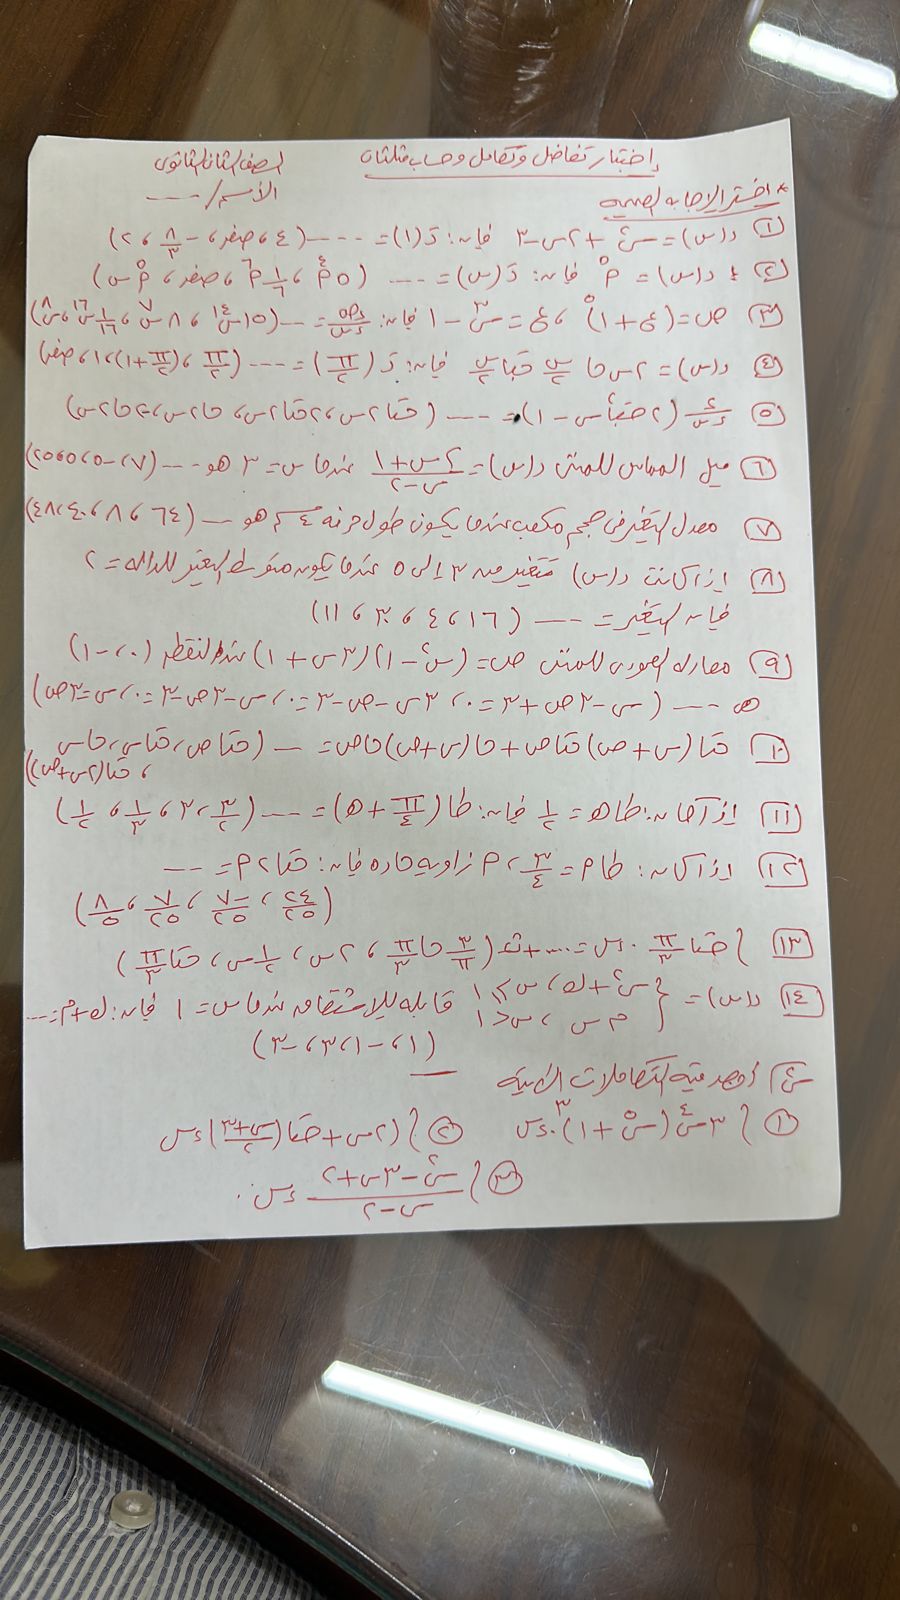 إختبار تفاضل وتكامل وحساب مثلثات
الصف الثانى الثانوى
الأسم / ----
* اختر الإجابه الصحيحه
① د(س) = س² + ٢س - ٣ فإن: دَ(١) = ---- (٤ ، صفر ، -٨/٣ ، ٢)
② د(س) = م⁵ فإن: دَ(س) = ---- (٥م⁴ ، ١/٦ م⁶ ، صفر ، م⁵ س)
③ ص = (ع + ١)⁵ ، ع = س³ - ١ فإن: ءص/ءس = --- (١٥س¹⁴ ، ٨س⁷ ، ١/١٦ س¹⁶ ، س⁸)
④ د(س) = ٢س حا س/٢ حتا س/٢ فإن: دَ(π/٢) = ---- (π/٢ ، (π/٢ + ١) ، ١ ، صفر)
⑤ ء/ءس (٢حتا²س - ١) = ---- (حتا٢س ، ٢حتا٢س ، حا٢س ، -٢حا٢س)
⑥ ميل المماس للمنحنى د(س) = (٢س + ١)/(س - ٢) عندما س = ٣ هو --- (٧ ، -٥ ، ٥ ، ٢)
⑦ معدل التغير فى حجم مكعب عندما يكون طول حرفه ٤سم هو --- (٦٤ ، ٨ ، ٤٠ ، ٤٨)
⑧ إذا كانت د(س) تتغير من ٣ إلى ٥ عندما يكون متوسط التغير للداله = ٢
فإن التغير = ---- (١٦ ، ٤ ، ٣٠ ، ١١)
⑨ معادله العمودى للمنحنى ص = (س² - ١)(٣س + ١) عند النقطه (٠ ، -١)
هى ---- (س - ٣ص + ٣ = ٠ ، ٣س - ص - ٣ = ٠ ، س - ٣ص - ٣ = ٠ ، س = ٣ص)
⑩ حتا(س + ص) حتاص + حا(س + ص) حاص = --- (حتاص ، حتاس ، حاس
، حتا(٢س + ص))
⑪ إذا كان: طاه = ١/٢ فإن: طا(π/٤ + ه) = ---- (٣/٢ ، ٣ ، ١/٣ ، ١/٢)
⑫ إذا كان: طام = ٣/٤ ، م زاويه حاده فإن: حتا٢م = ---
(٢٤/٢٥ ، -٧/٢٥ ، ٧/٢٥ ، ٨/٥)
⑬ ∫ حتا π/٣ . ءس = .... + ث (٣/π حا π/٣ ، ٢س ، ١/٢ س ، حتا π/٣)
⑭ د(س) = { س² + ك ، س ≥ ١
م س ، س < ١ قابله للإشتقاق عندما س = ١ فإن: ك + م = ---
(١ ، -١ ، ٣ ، -٣)
س٢ أوجد قيمة التكاملات الآتيه
① ∫ ٣س⁴(س⁵ + ١)³ . ءس ② ∫ (٢س + حتا(س+٣/٢)) ءس
③ ∫ (س² - ٣س + ٢)/(س - ٢) ءس .